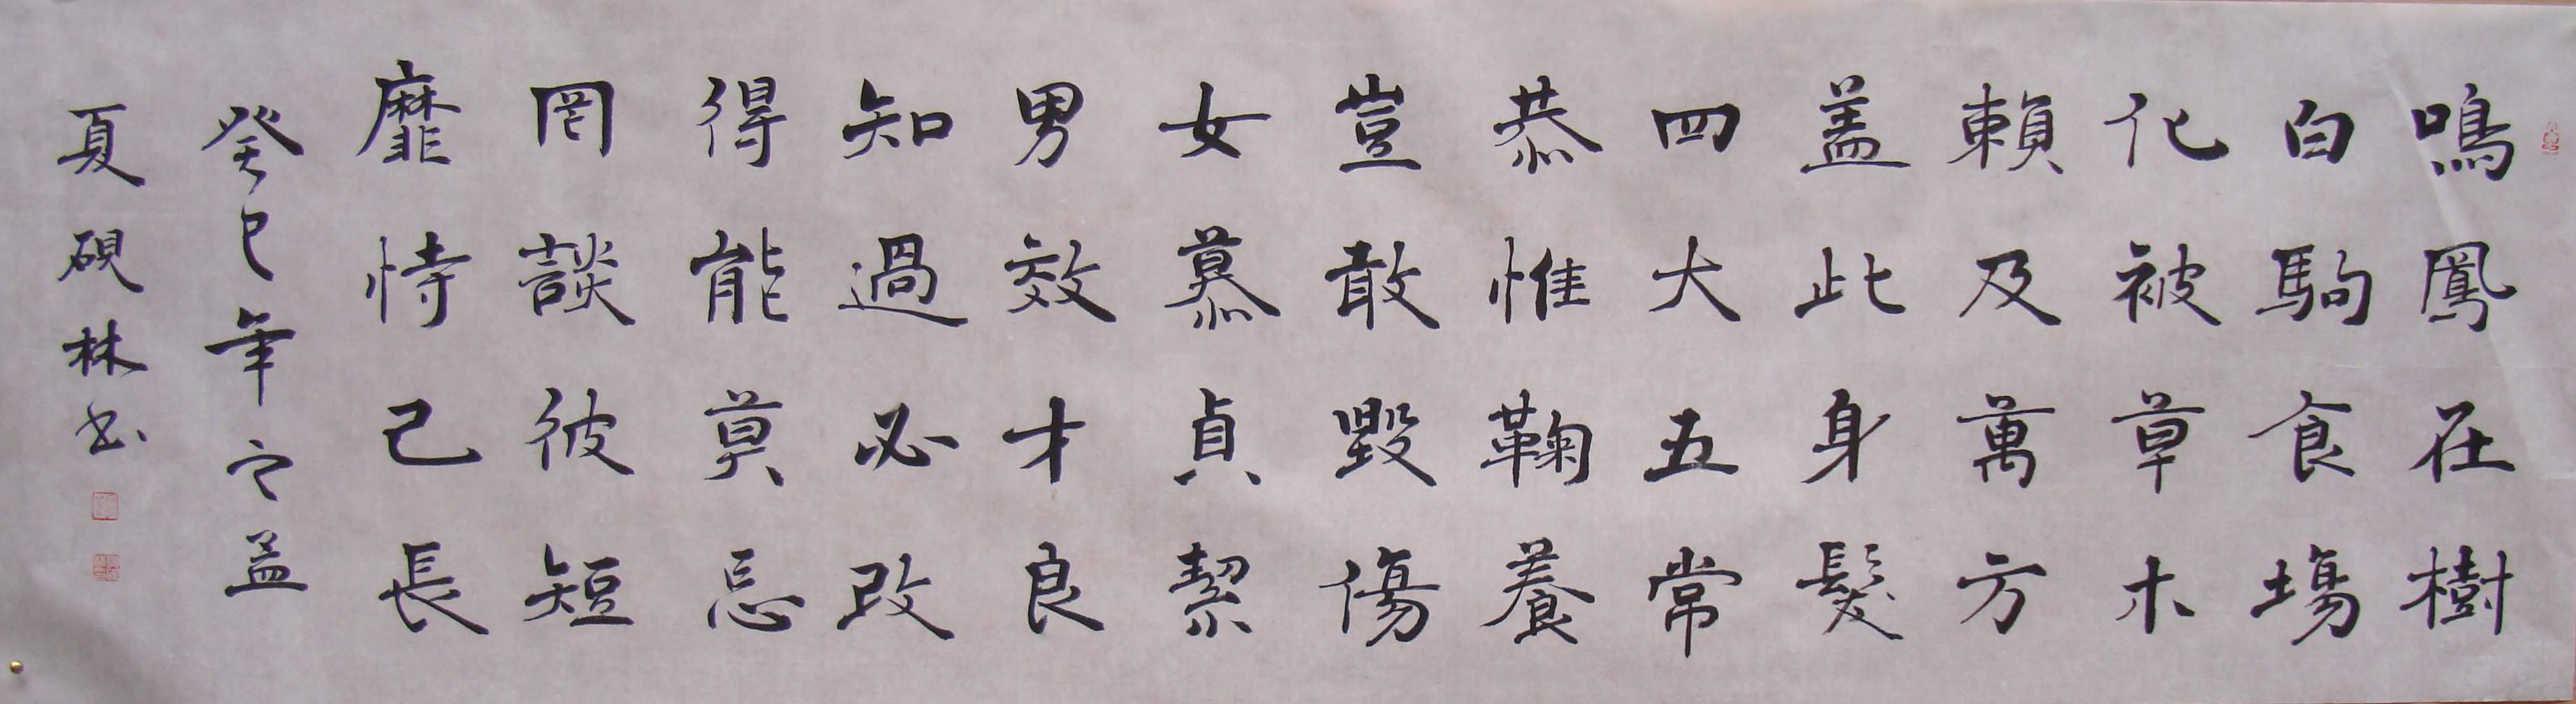 鳴鳳在樹
白駒食場
化被草木
賴及萬方
蓋此身髮
四大五常
恭惟鞠養
豈敢毀傷
女慕貞絜
男效才良
知過必改
得能莫忘
罔談彼短
靡恃己長
癸巳年之益
夏硯林书